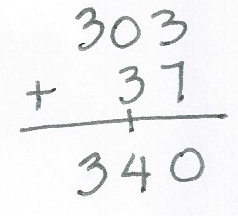 303
+ 37
340